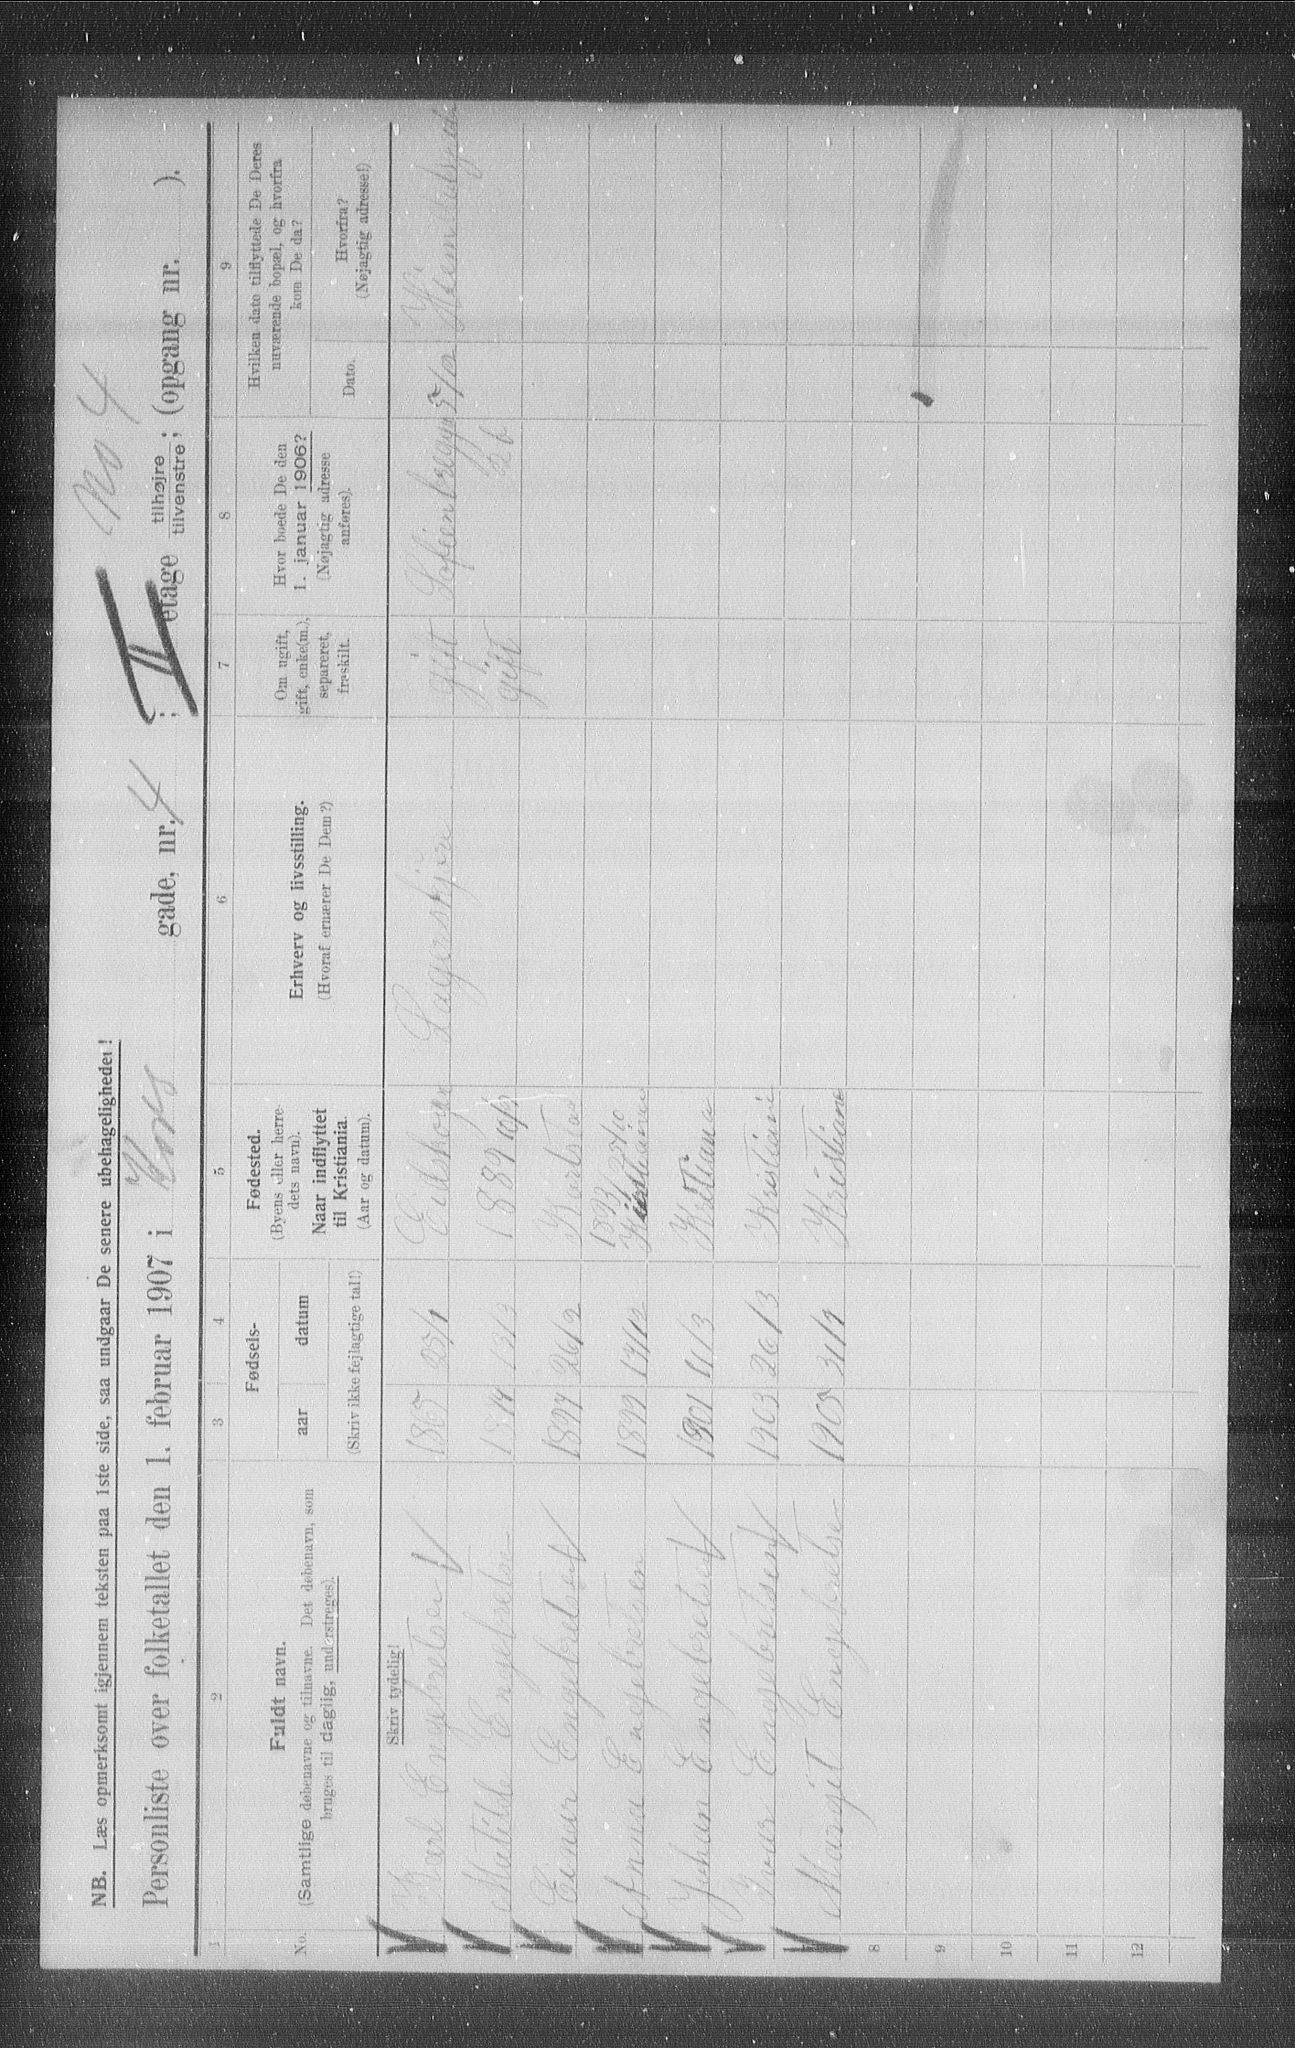 NB. Læs opmerksomt igjennem teksten paa 1ste side, saa undgaar De senere ubehageligheder!
No 4
Personliste over folketallet den 1. februar 1907 i gade, nr. 4; II etage tilhøjre tilvenstre; (opgang nr. ).
1 2 3 4 5 6 7 8 9
No.
Fuldt navn.
(Samtlige døbenavne og tilnavne. Det døbenavn, som
bruges til daglig, understreges).
Fødsels-
aar datum
(Skriv ikke fejlagtige tal!)
Fødested.
(Byens eller herre-
dets navn).
Naar indflyttet
til Kristiania.
(Aar og datum).
Erhverv og livsstilling.
(Hvoraf ernærer De Dem?)
Om ugift,
gift, enke(m.),
separeret,
fraskilt.
Hvor boede De den
1. januar 1906?
(Nøjagtig adresse
anføres).
Hvilken dato tilflyttede De Deres
nuværende bopæl, og hvorfra
kom De da?
Dato.
Hvorfra?
(Nøjagtig adresse!)
Skriv tydelig!
Karl Engebretsen 1865 25/1 gift
Matilde Engebretsen 13/3 1889 gift 26
Einar Engebretsen 26/2 Karlstad
1893
Anna Engebretsen 1899 Kristiania
Johan Engebretsen 1901 11/3 Kristiania
Ivar Engebretsen 1903 26/3 Kristiani
Margit Engebretsen 1905 Kristiane
8
9
10
11
12